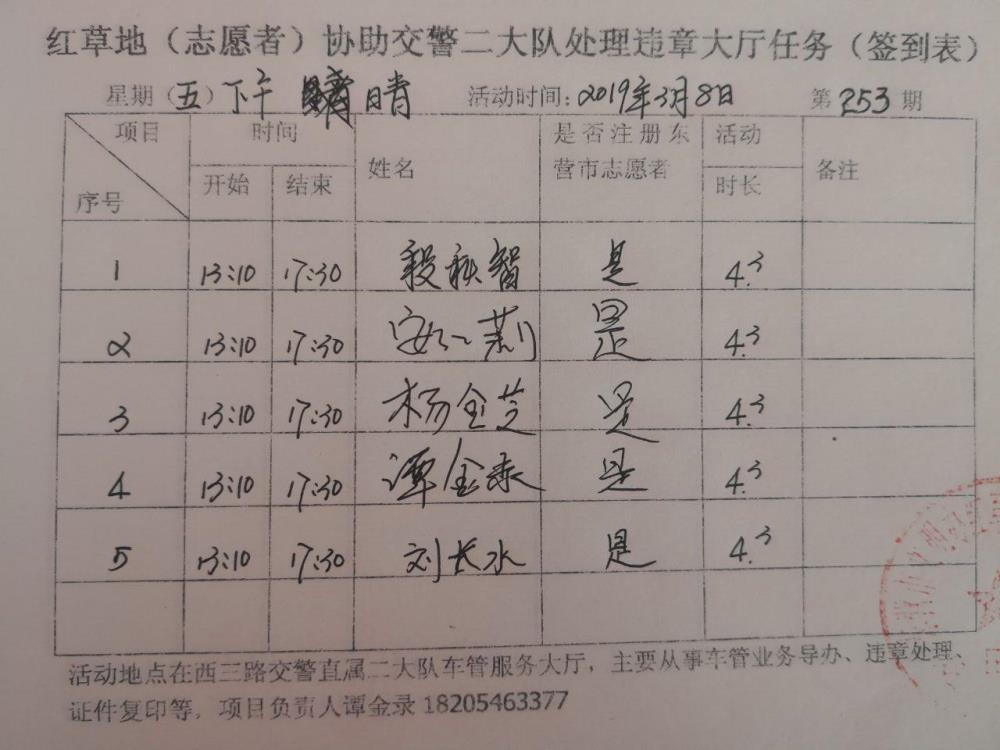 红草地（志愿者）协助交警二大队处理违章大厅任务（签到表）
星期（五）下午 晴 活动时间：2019年3月8日 第253期
项目 时间 姓名 是否注册东营市志愿者 活动时长 备注
序号 开始 结束
1 13:10 17:30 智 是 4.3
2 13:10 17:30 安 是 4.3
3 13:10 17:30 杨金芝 是 4.3
4 13:10 17:30 谭金录 是 4.3
5 13:10 17:30 刘长水 是 4.3
活动地点在西三路交警直属二大队车管服务大厅，主要从事车管业务导办、违章处理、
证件复印等，项目负责人谭金录 18205463377